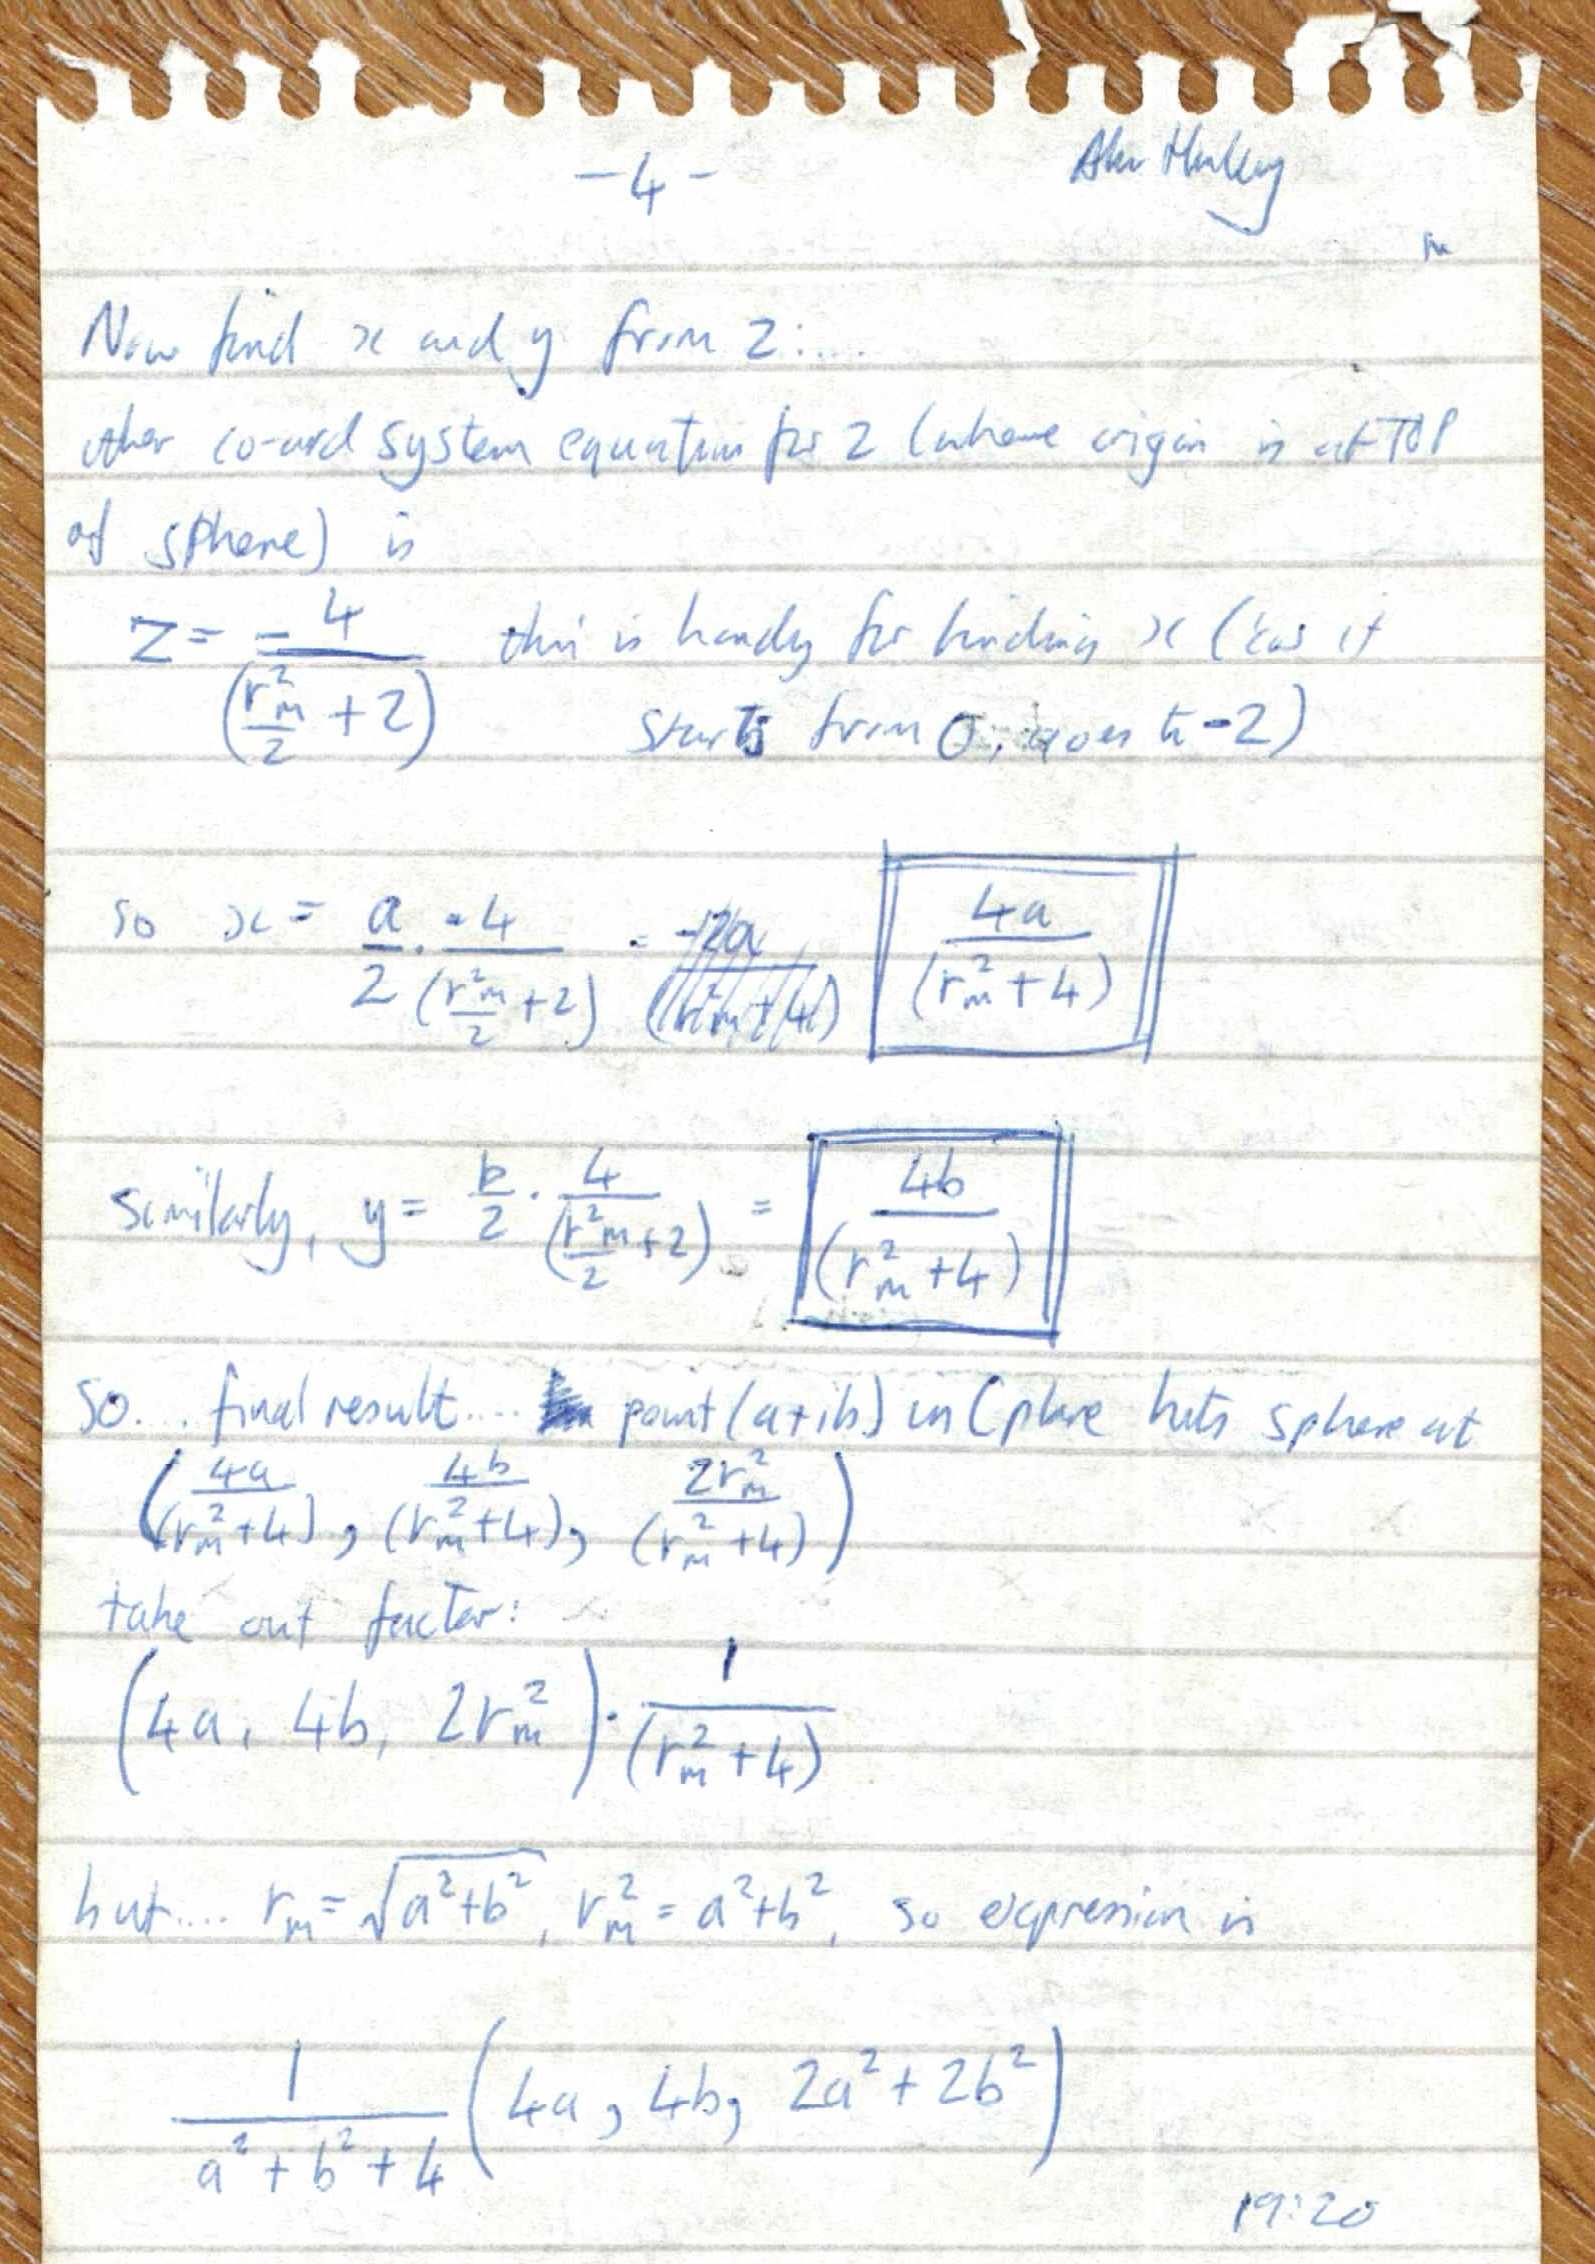 - 4 -
Now find x and y from z:....
other co-ord system equation for z (where origin is at TOP
of sphere) is
z = - 4 / (r_m^2/2 + 2) this is handy for finding x ('cos it
starts from 0, goes to -2)
so x = a/2 . -4/(r_m^2/2 + 2) = 4a/(r_m^2 + 4)
similarly, y = b/2 . 4/(r_m^2/2 + 2) = 4b/(r_m^2 + 4)
so.... final result.... point (a+ib) in C plane hits sphere at
(4a/(r_m^2+4), 4b/(r_m^2+4), 2r_m^2/(r_m^2+4))
take out factor:
(4a, 4b, 2r_m^2) . 1/(r_m^2 + 4)
but.... r_m = √(a^2+b^2), r_m^2 = a^2+b^2, so expression is
1/(a^2 + b^2 + 4) (4a, 4b, 2a^2 + 2b^2)
19:20